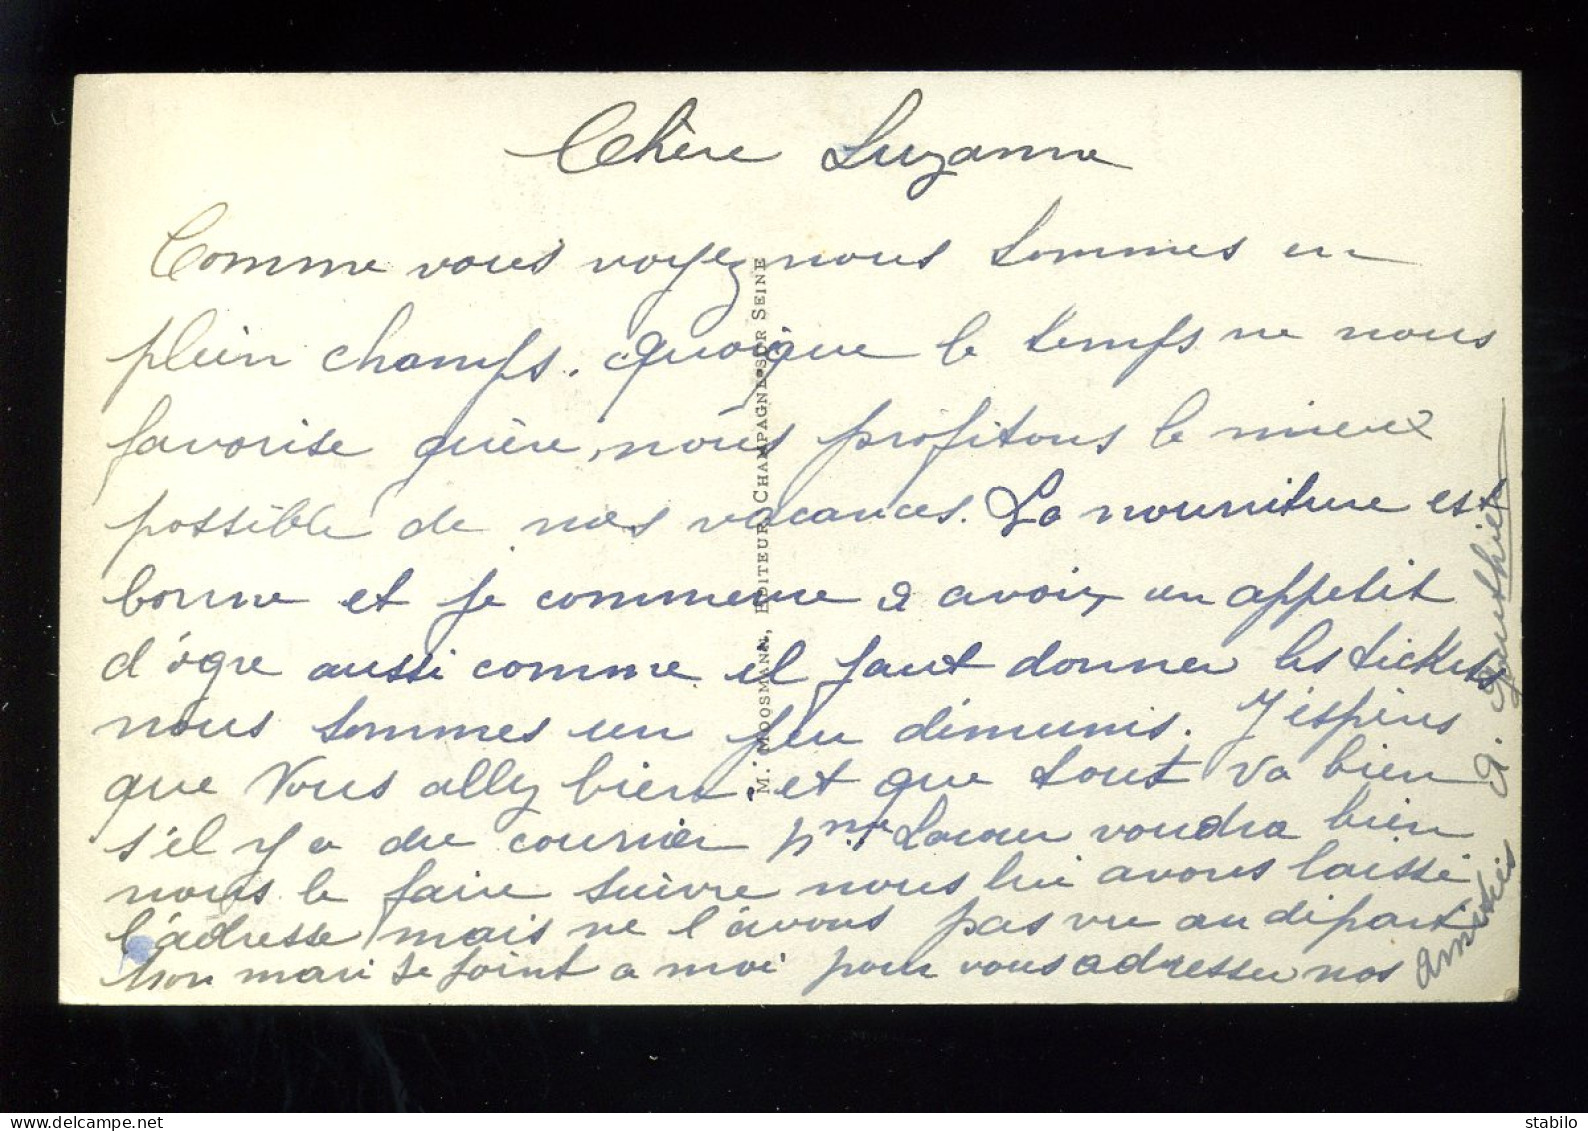 Chère Suzanne
Comme vous voyez nous sommes en
plein champs. quoique le temps ne nous
favorise guère, nous profitons le mieux
possible de nos vacances. La nourriture est
bonne et je commence a avoir un appetit
d'ogre aussi comme il faut donner les tickets
nous sommes un peu démunis. J'éspères
que Vous allez bien et que tout va bien
s'il y a du courrier voudra bien
nous le faire suivre nous lui avons laissé
l'adresse mais ne l'avons pas vu au départ
Mon mari se joint a moi pour vous adresser nos
Amitiés G. Gauthier
M. MOOSMANN, EDITEUR, CHAMPAGNE-SUR SEINE
delcampe.net
stabilo